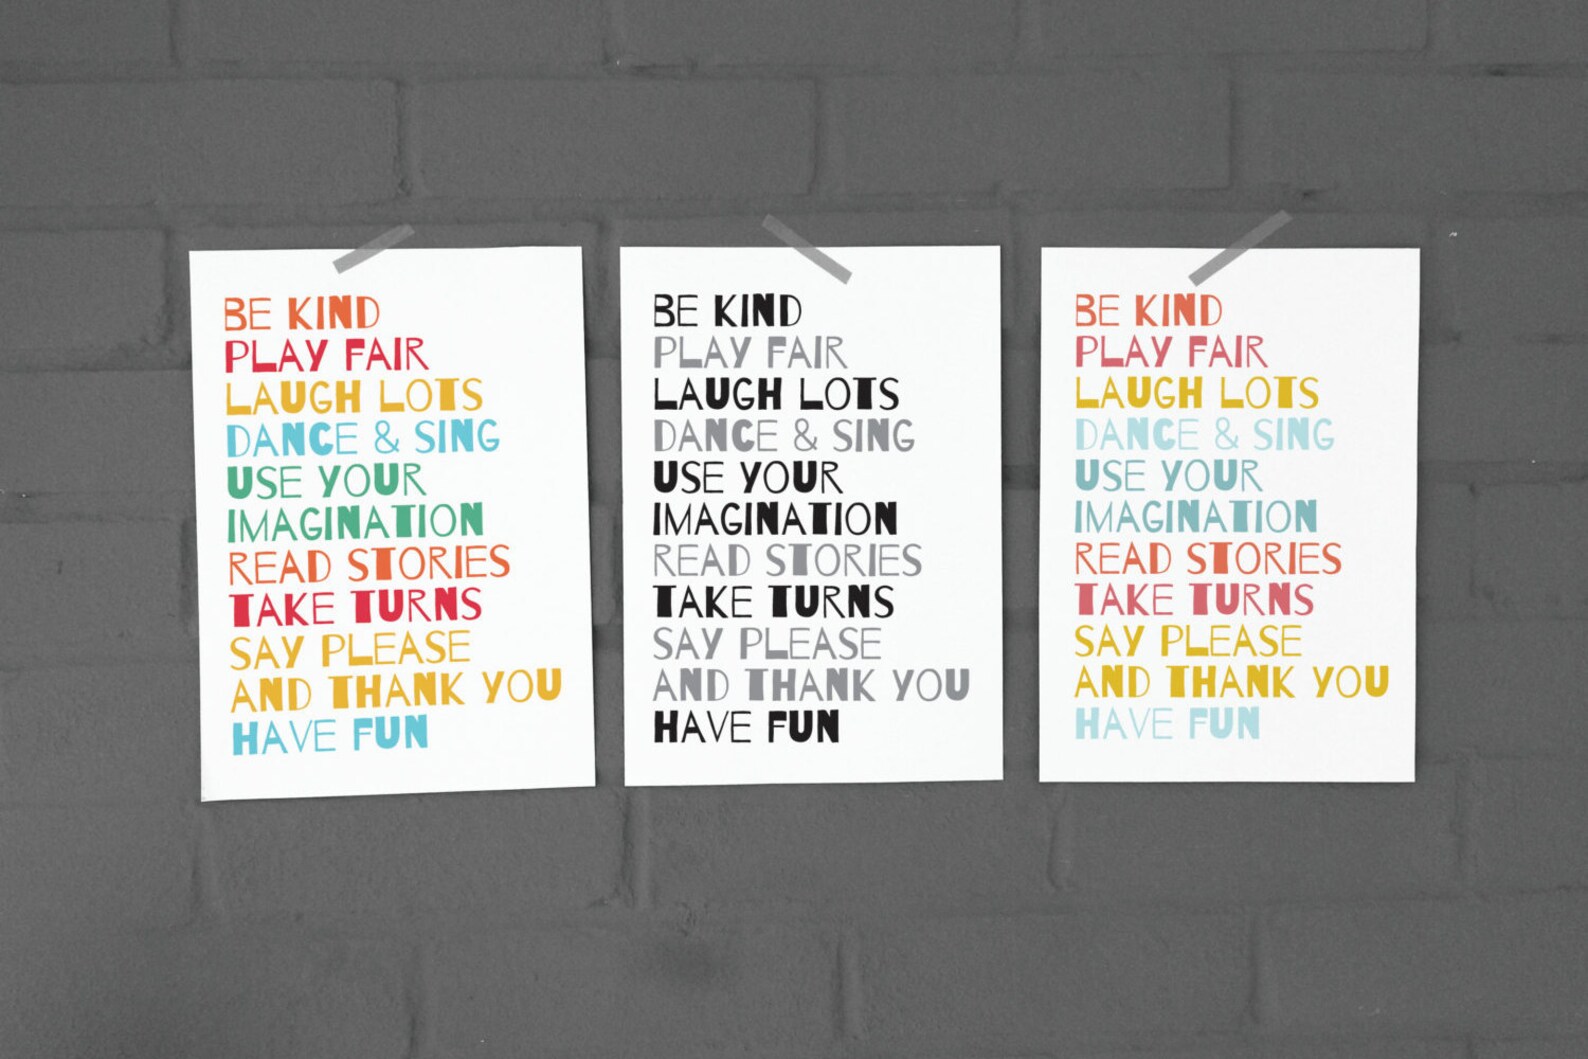 BE KIND
PLAY FAIR
LAUGH LOTS
DANCE & SING
USE YOUR
IMAGINATION
READ STORIES
TAKE TURNS
SAY PLEASE
AND THANK YOU
HAVE FUN
BE KIND
PLAY FAIR
LAUGH LOTS
DANCE & SING
USE YOUR
IMAGINATION
READ STORIES
TAKE TURNS
SAY PLEASE
AND THANK YOU
HAVE FUN
BE KIND
PLAY FAIR
LAUGH LOTS
DANCE & SING
USE YOUR
IMAGINATION
READ STORIES
TAKE TURNS
SAY PLEASE
AND THANK YOU
HAVE FUN